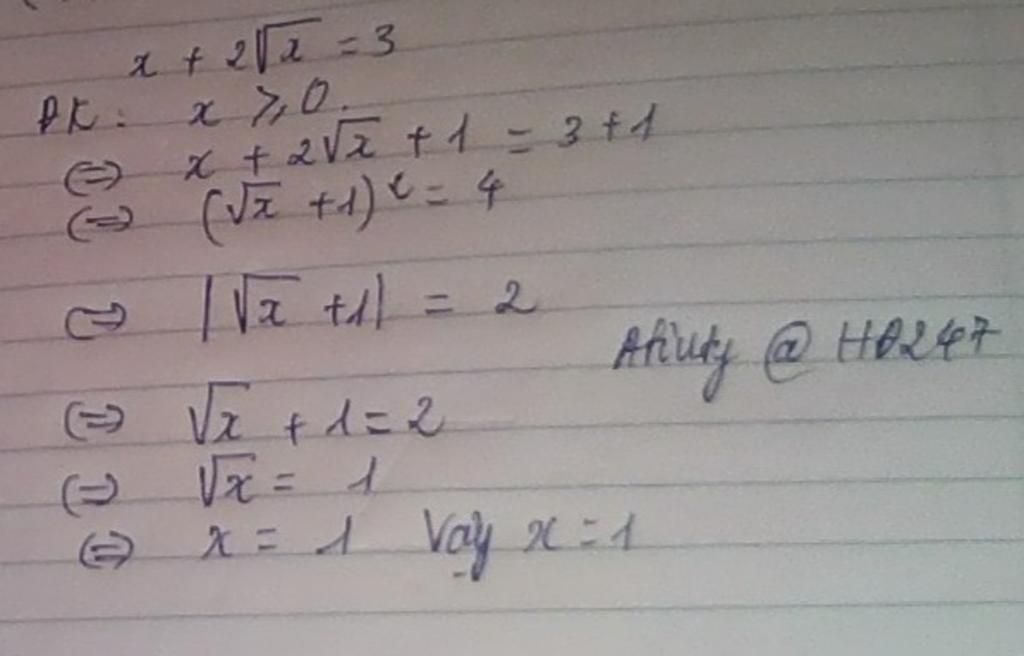 x + 2√x = 3
ĐK: x ≥ 0.
(=) x + 2√x + 1 = 3 + 1
(=) (√x + 1)² = 4
(=) |√x + 1| = 2
@ HĐ247
(=) √x + 1 = 2
(=) √x = 1
(=) x = 1 Vậy x = 1